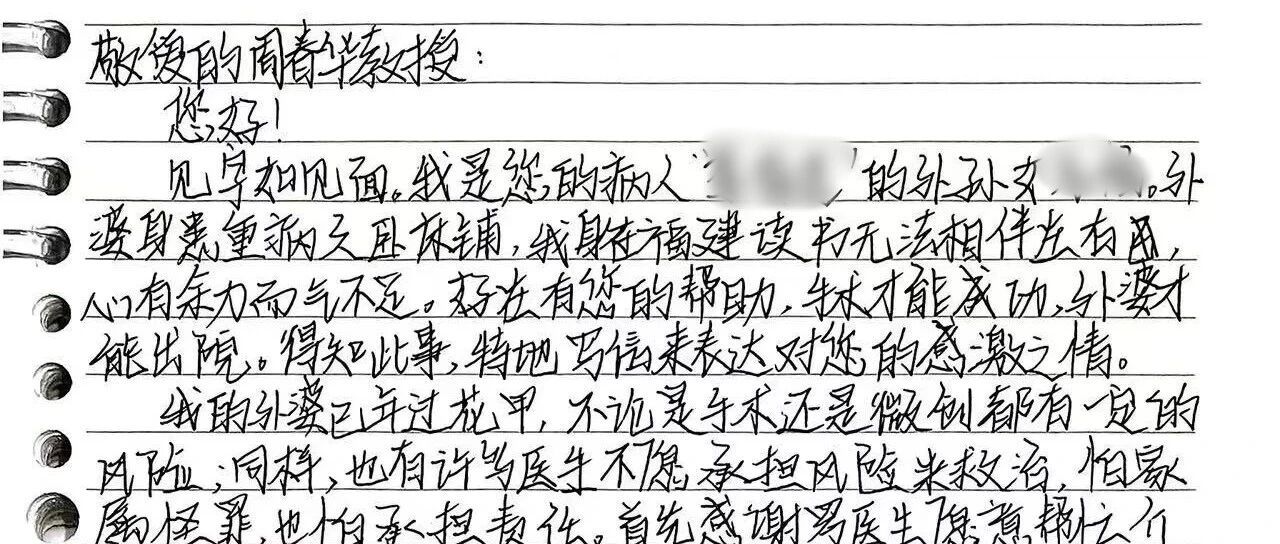 敬爱的周春华教授：
您好！
见字如见面。我是您的病人 的外孙女 。外
婆身患重病久卧床铺，我身在福建读书无法相伴左右，
心有余力而气不足。好在有您的帮助，手术才能成功，外婆才
能出院。得知此事，特地写信来表达对您的感激之情。
我的外婆已年过花甲，不论是手术还是微创都有一定的
风险；同样，也有许多医生不愿承担风险来救治，怕家
属怪罪，也怕承担责任。首先感谢 医生愿意帮忙介